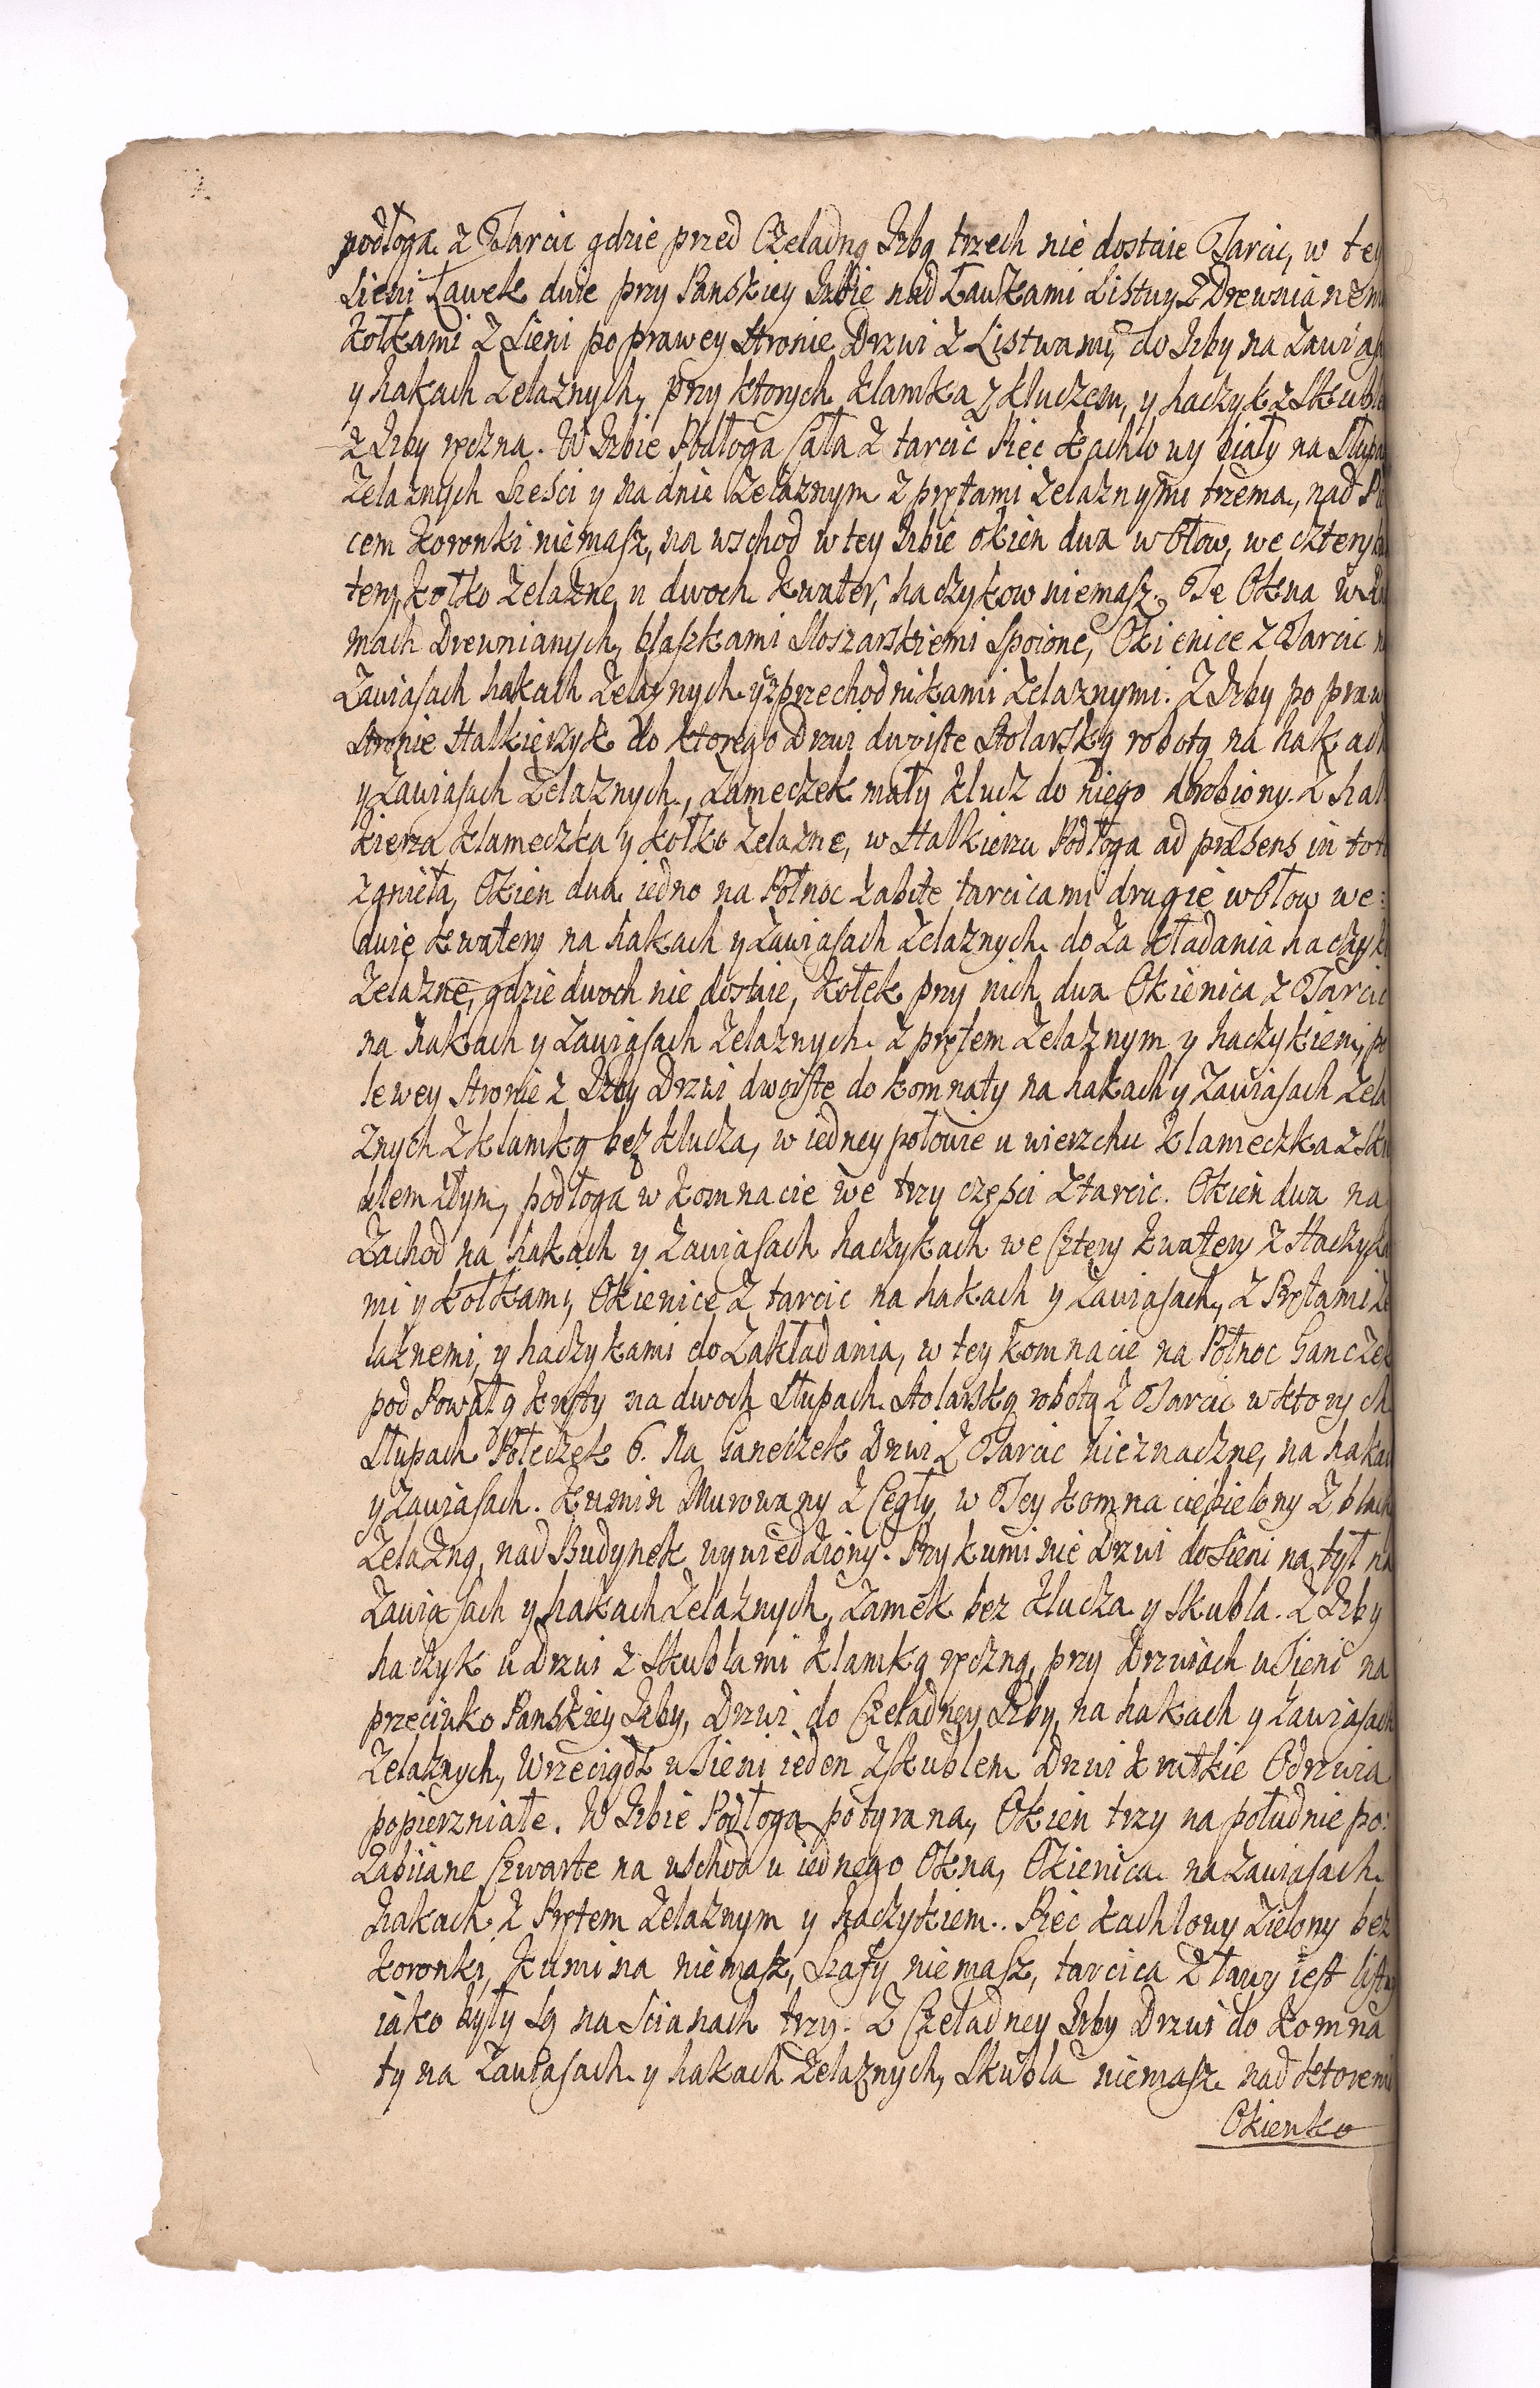 podłoga z Tarcic gdzie przed Czeladną Izbą trzech nie dostaie Tarcic, w tey
Sieni Ławek dwie przy Panskiey Izbie nad Ławkami Listwy z Drewnianemi
Kołkami z Sieni po prawey Stronie Drzwi z Listwami, do Izby na Zawias
y hakach Zelaznych, przy ktorych klamka z kluczem, y haczyk z Skubl
z Izby ręczna. W Izbie Podłoga Cała z tarcic Piec kachlowy biały na Słupa
Zelaznych Sześci y na dnie Zelaznym z prętami Zelaznymi trzema, nad Pi
cem Koronki niemasz, na wschod w tey Izbie okien dwa w Ołow, we cztery kwa
tery, kołko Zelazne u dwoch kwater, haczykow niemasz. Te Okna w Ra
mach Drewnianych, blaszkami Sloszarskiemi Spoione, Okienice z Tarcic n
Zawiasach hakach Zelaznych y z przechodnikami Zelaznymi. Z Izby po praw
Stronie Halkierzyk do ktorego Drzwi dwoiste Stolarską robotą na hakach
y Zawiasach Zelaznych, Zameczek mały klucz do niego dorobiony. Z hal
kierza klameczka y kołko Zelazne, w Halkierzu Podłoga ad præsens in toto
zgnieła, Okien dwa iedno na Połnoc Zabite tarcicami drugie w Ołow we:
dwie kwatery na hakach y Zawiasach Zelaznych do Zakładania haczyki
Zelazne, gdzie dwoch nie dostaie, kołek przy nich dwa Okienica z Tarcic
na hakach y Zawiasach Zelaznych z prętem Zelaznym y haczykiem, po
lewey Stronie z Izby Drzwi dwoiste do komnaty na hakach y Zawiasach Zela
znych z klamką bez klucza, w iedney połowie u wierzchu klameczka z Sku
blem złym, podłoga w komnacie we trzy części z tarcic. Okien dwa na
Zachod na hakach y Zawiasach haczykach we Cztery kwatery z Haczyka
mi y kołkami, Okienice z tarcic na hakach y Zawiasach, z Prętami Ze
laznemi, y haczykami do Zakładania, w tey komnacie na Połnoc Ganczek
pod Powałą kryty na dwoch Słupach Stolarską robotą z Tarcic w ktorych
Słupach Połeczek 6. Na Ganeczek Drzwi z Tarcic nieznaczne, na hakach
y Zawiasach. Kumin Murowany z Cegły, w Tey komnacie bielony z blach
Zelazną, nad Budynek wywiedziony. Przy kuminie Drzwi do Sieni na tył na
Zawiasach y hakach Zelaznych, Zamek bez klucza y Skubla. Z Izby
haczyk u Drzwi z Skublami klamką ręczną, przy Drzwiach u Sieni na
przeciwko Panskiey Izby, Drzwi do Czeladney Izby, na hakach y Zawiasach
Zelaznych, Wrzeciądz u Sieni ieden z Skublem Drzwi krutkie Odrzwia
popierzniałe. W Izbie Podłoga potyrana, Okien trzy na południe po:
Zabiiane Czwarte na wschod u iednego Okna, Okienica na Zawiasach
hakach z Prętem Zelaznym y haczykiem. Piec kachlowy Zielony bez
Koronki, Kumina niemasz, Szafy niemasz, tarcica z ławy iest listwy
iako były Są na Scianach trzy. Z Czeladney Izby Drzwi do Komna
ty na Zawiasach y hakach Zelaznych, Skubla niemasz nad ktoremi
Okienko